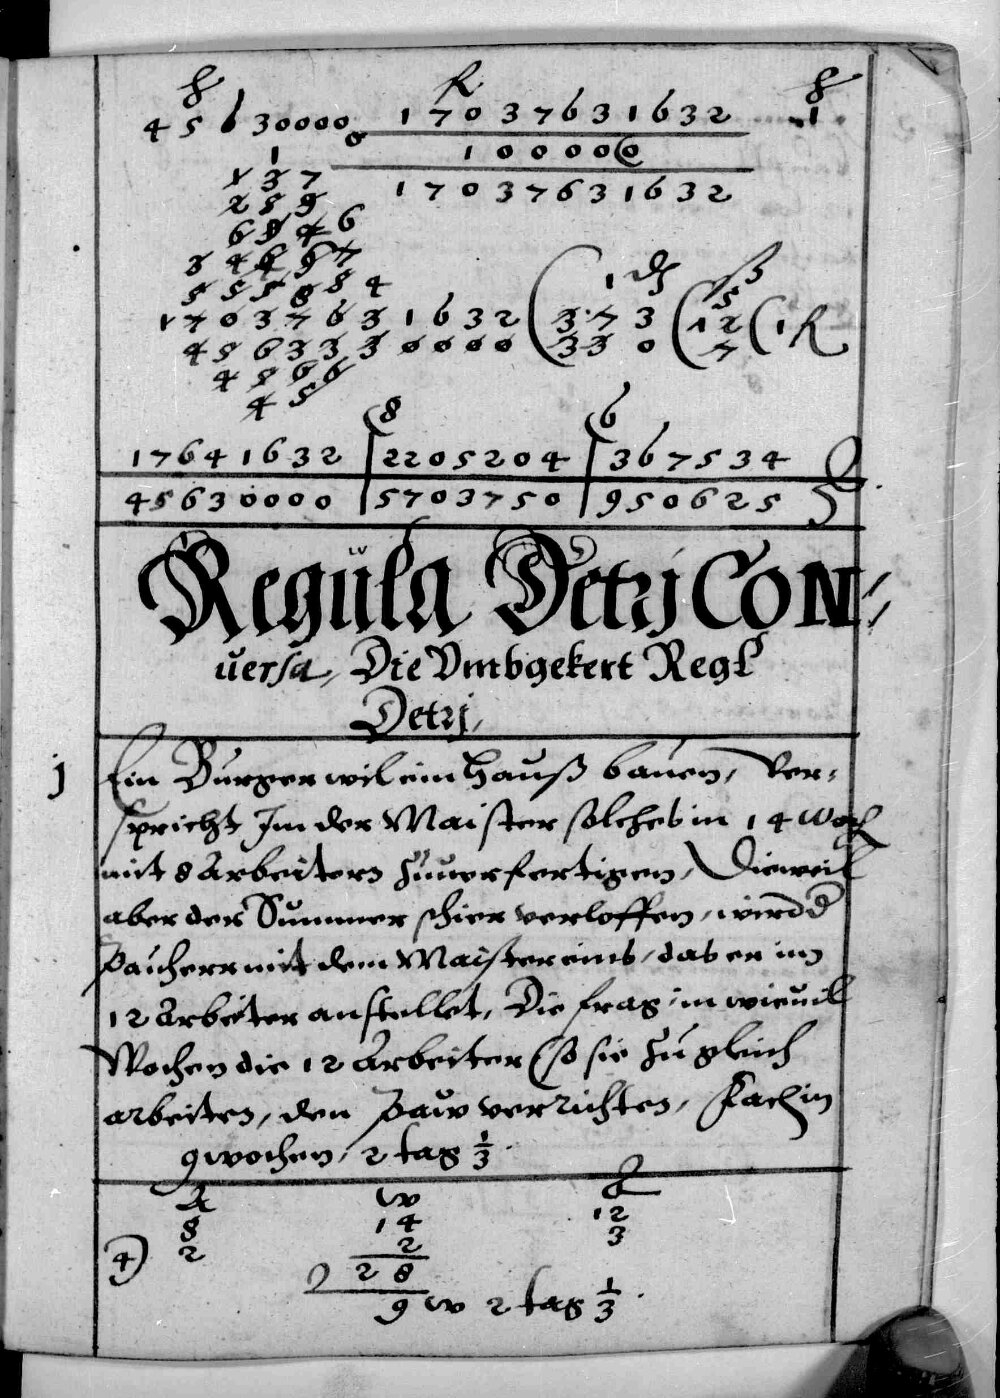 45630000 17037631632 1
100000
17037631632
1
1 3 7
2 8 9
6 9 4 6
3 4 6 9 7
5 5 5 8 8 4
17037631632 ( 373 ( 12 ( 1 R
45633330000 330 7
4 5 6 6
4 5
8 6
17641632 | 2205204 | 367534
45630000 | 5703750 | 950625
Regüla Detrj CON⸗
uersa, Die Vmbgekert Regl
Detrj,
j Ein Burger wil ein Hauß bauen, Ver⸗
spricht Im der Maister solches in 14 Woch
mit 8 Arbeitern zuuerfertigen, Dieweil
aber der Summer schier verloffen, wirdd
Pauherr mit dem Maister eins, das er im
12 Arbeiter anstellet, Die frag, in wieuil
Wochen die 12 Arbeiter (so sie zu gleich
arbeiten, den Paw verrichten, Facit in
9 wochen, 2 tag 1/3.
A W A
8 14 12
4) 2 2 3
28
9 w 2 tag 1/3.